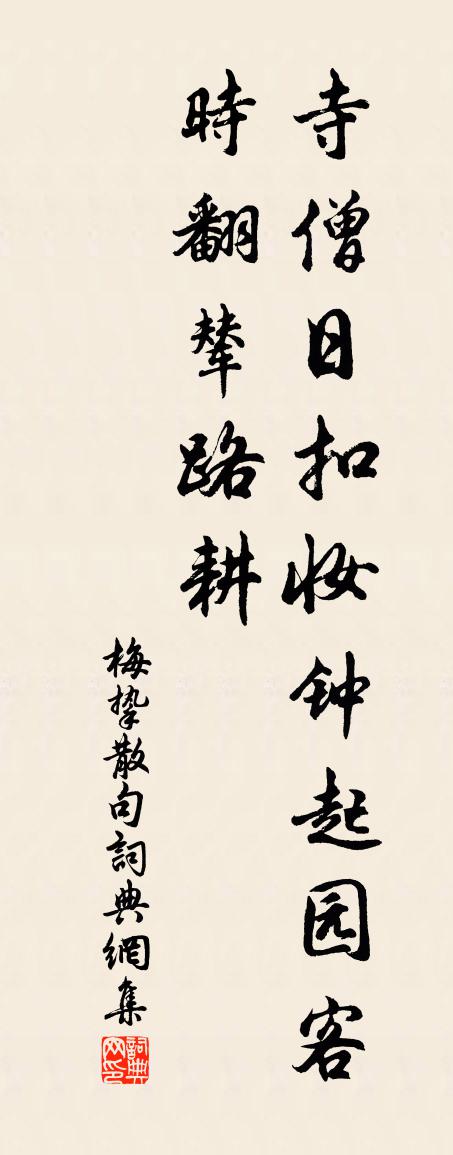 寺僧日扣妆钟起园客
時翻輦路耕
梅挚散句詞典網集
詞典网印